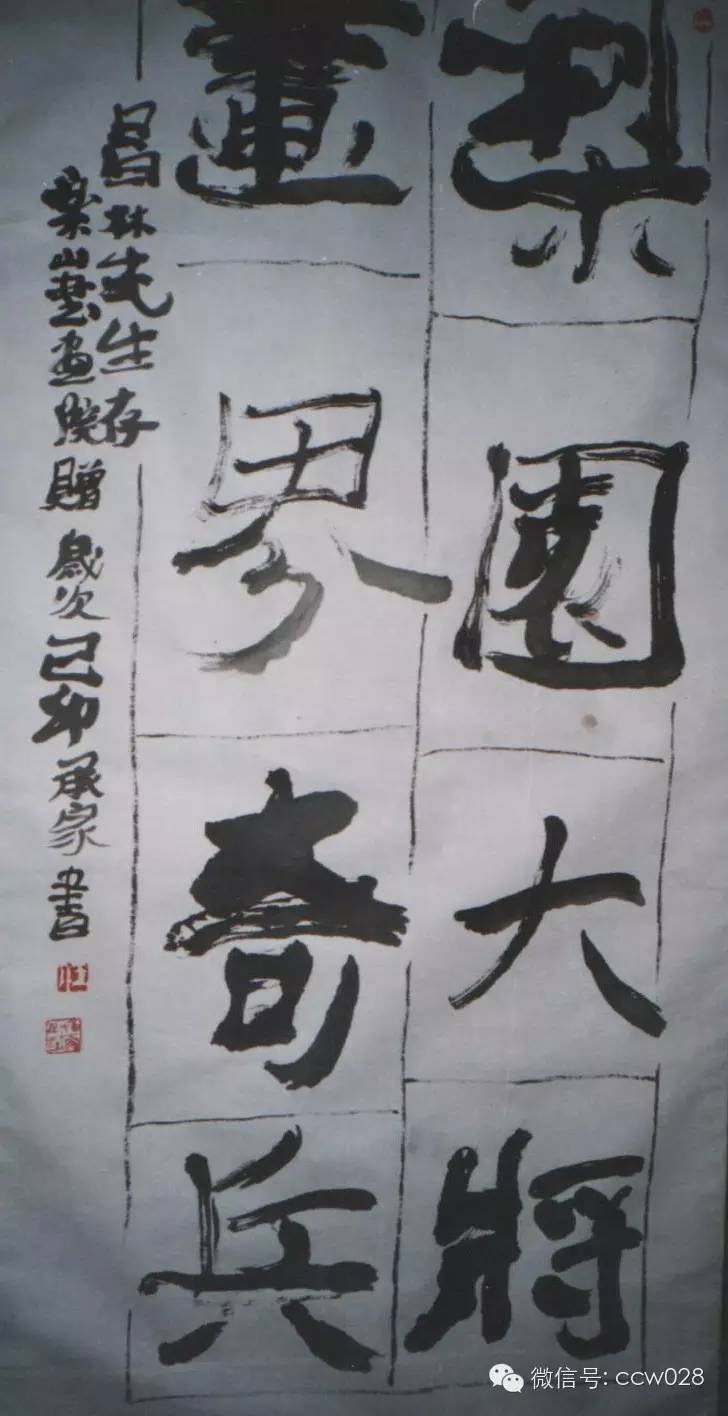 梨園大將
畫界奇兵
昌林先生存
樂山書畫院贈 歲次己卯 承家書
微信号: ccw028